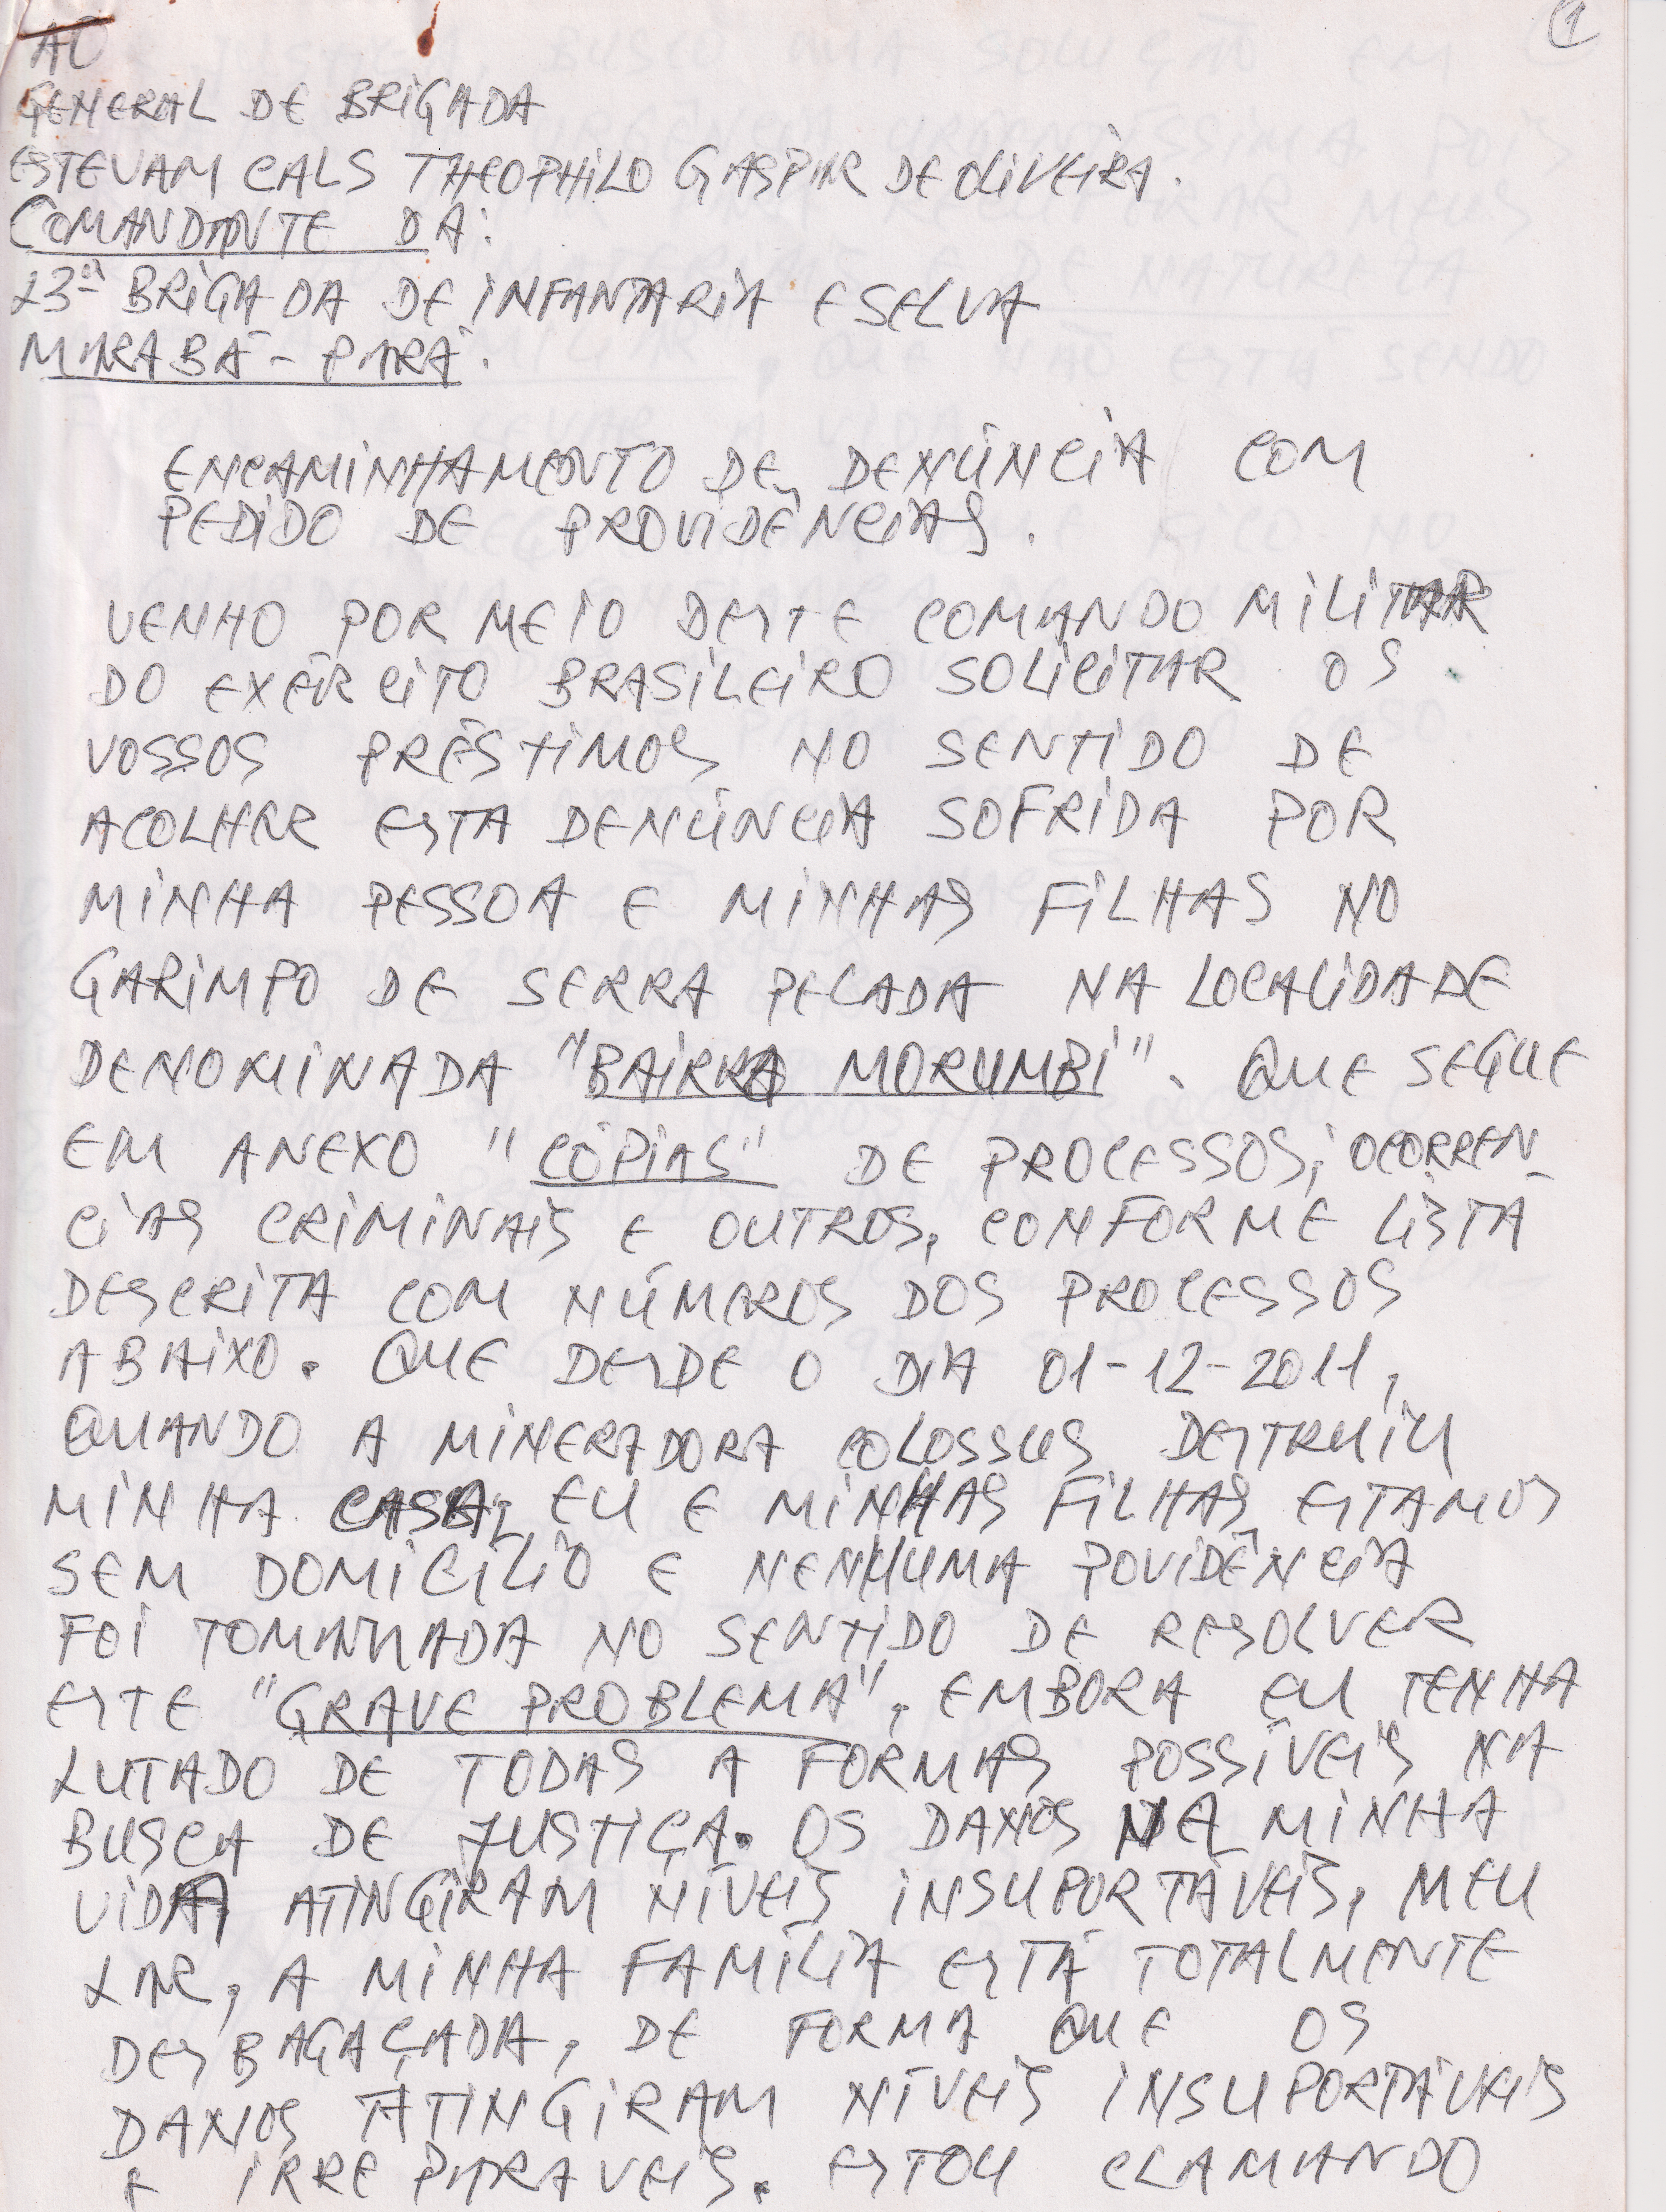 1
AO
GENERAL DE BRIGADA
ESTEVAM CALS THEOPHILO GASPAR DE OLIVEIRA.
COMANDANTE DA:
23ª BRIGADA DE INFANTARIA E SELVA
MARABÁ - PARÁ.
ENCAMINHAMENTO DE DENÚNCIA COM
PEDIDO DE PROVIDÊNCIAS.
VENHO POR MEIO DESTE COMANDO MILITAR
DO EXÉRCITO BRASILEIRO SOLICITAR OS
VOSSOS PRÉSTIMOS NO SENTIDO DE
ACOLHER ESTA DENÚNCIA SOFRIDA POR
MINHA PESSOA E MINHAS FILHAS NO
GARIMPO DE SERRA PELADA NA LOCALIDADE
DENOMINADA "BAIRRO MORUMBI". QUE SEGUE
EM ANEXO "CÓPIAS" DE PROCESSOS, OCORREN-
CIAS CRIMINAIS E OUTROS, CONFORME LISTA
DESCRITA COM NÚMEROS DOS PROCESSOS
ABAIXO. QUE DESDE O DIA 01-12-2011,
QUANDO A MINERADORA COLOSSUS DESTRUIU
MINHA CASA, EU E MINHAS FILHAS ESTAMOS
SEM DOMICILIO E NENHUMA POVIDÊNCIA
FOI TOMADA NO SENTIDO DE RESOLVER
ESTE "GRAVE PROBLEMA", EMBORA EU TENHA
LUTADO DE TODAS A FORMAS POSSÍVEIS NA
BUSCA DE JUSTIÇA. OS DANOS NA MINHA
VIDA ATINGIRAM NÍVEIS INSUPORTÁVEIS, MEU
LAR, A MINHA FAMÍLIA ESTÁ TOTALMENTE
DESBAGAÇADA, DE FORMA QUE OS
DANOS ATINGIRAM NÍVEIS INSUPORTÁVEIS
E IRREPARAVEIS. ESTOU CLAMANDO